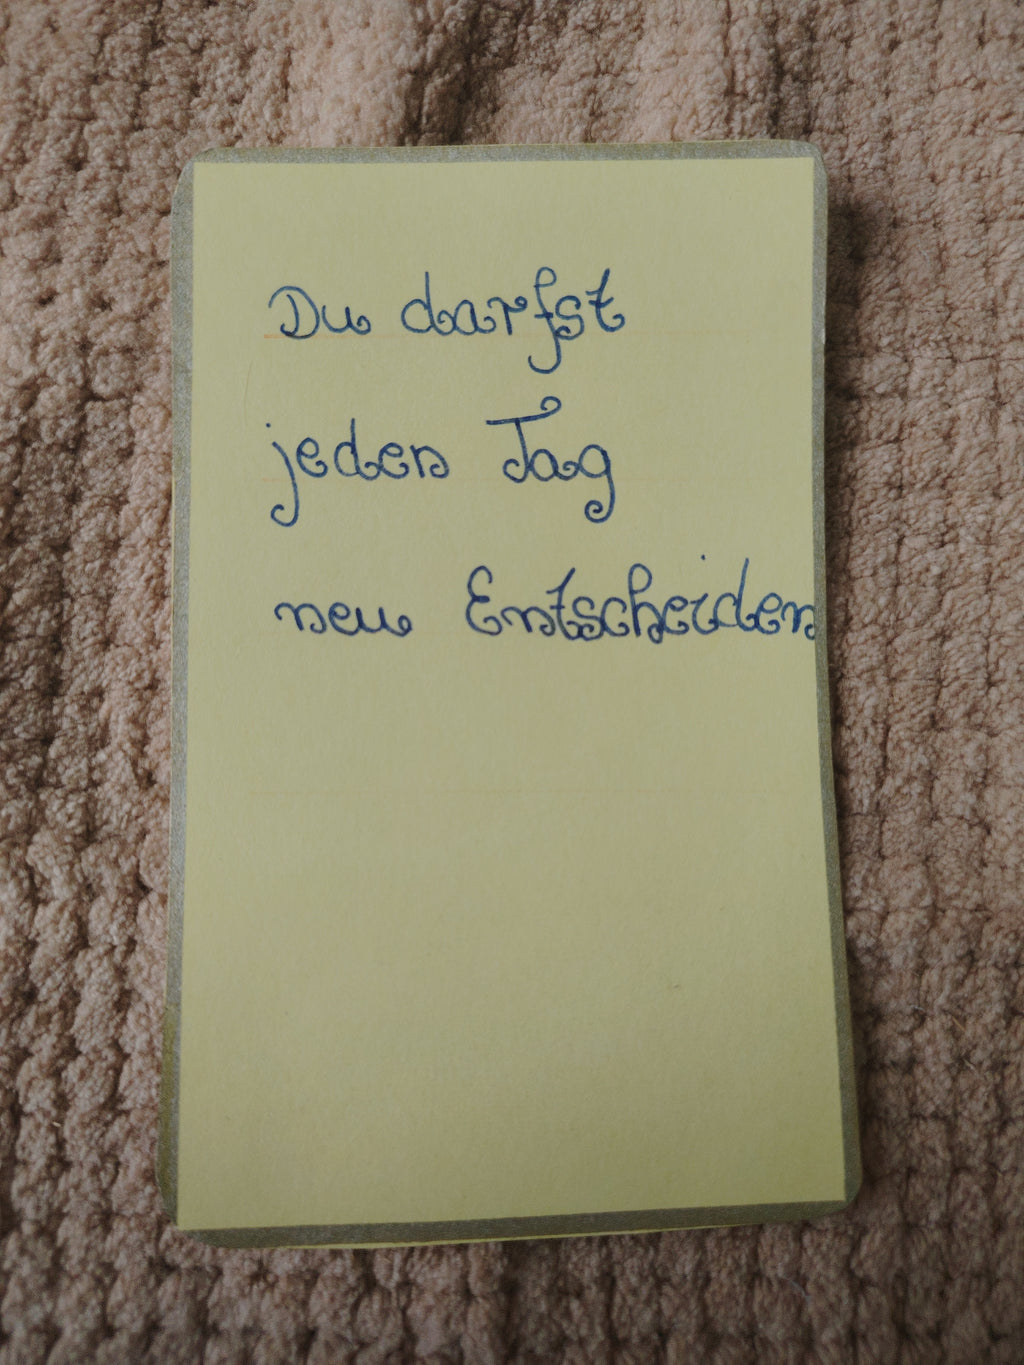 Du darfst
jeden Tag
neu Entscheiden